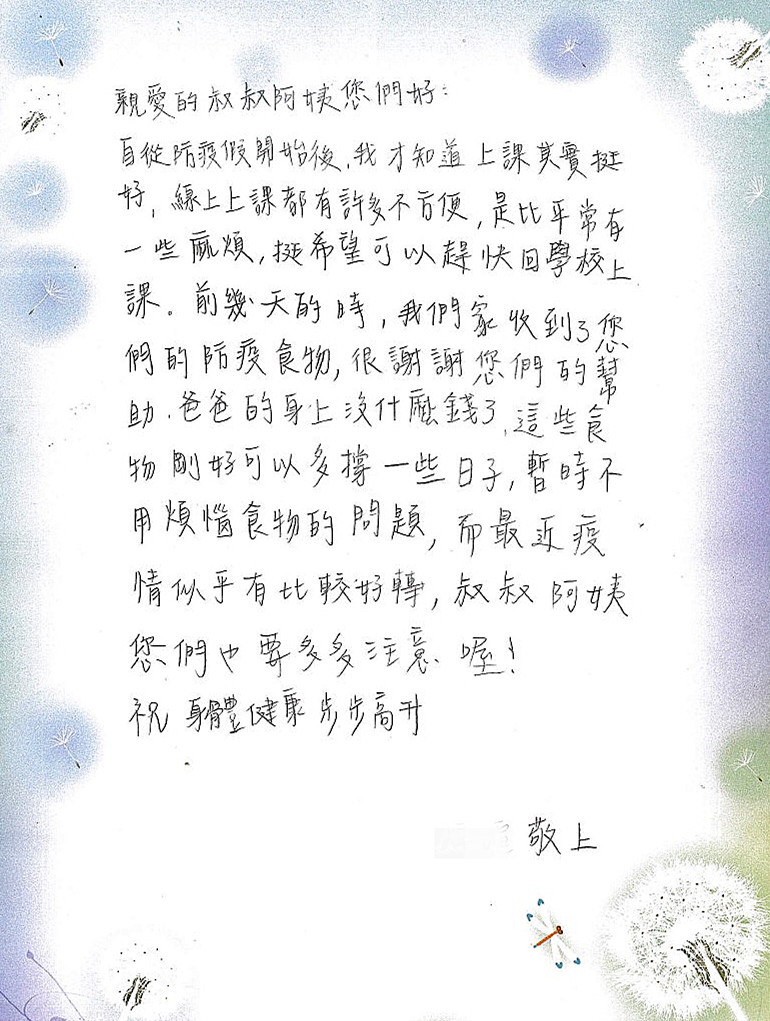 親愛的叔叔阿姨您們好:
自從防疫假開始後,我才知道上課其實挺
好,線上上課都有許多不方便,是比平常有
一些麻煩,挺希望可以趕快回學校上
課。前幾天的時,我們家收到了您
們的防疫食物,很謝謝您們的幫
助.爸爸的身上沒什麼錢了,這些食
物剛好可以多撐一些日子,暫時不
用煩惱食物的問題,而最近疫
情似乎有比較好轉,叔叔阿姨
您們也要多多注意喔!
祝身體健康步步高升
敬上